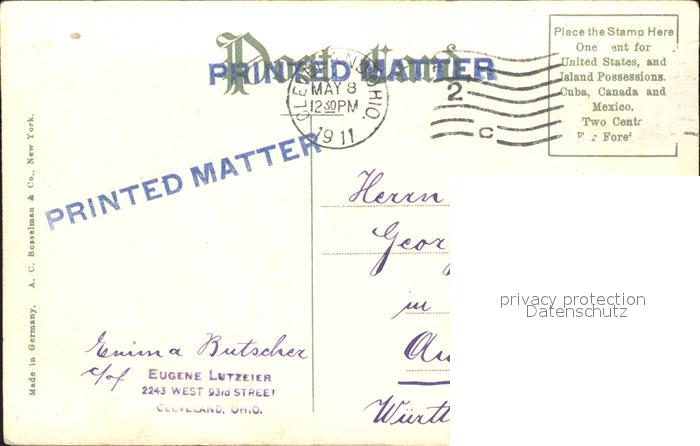 Post Card
PRINTED MATTER
CLEVELAND, OHIO.
MAY 8
12 30 PM
1911
2
C
Place the Stamp Here
One ent for
United States, and
Island Possessions.
Cuba, Canada and
Mexico.
Two Cents
For Fore
PRINTED MATTER
Made in Germany. A. C. Bosselman & Co., New York.
Herrn
Geor
in
Württ
privacy protection
Datenschutz
Emma Butscher
c/of EUGENE LUTZEIER
2243 WEST 93rd STREET
CLEVELAND, OHIO.